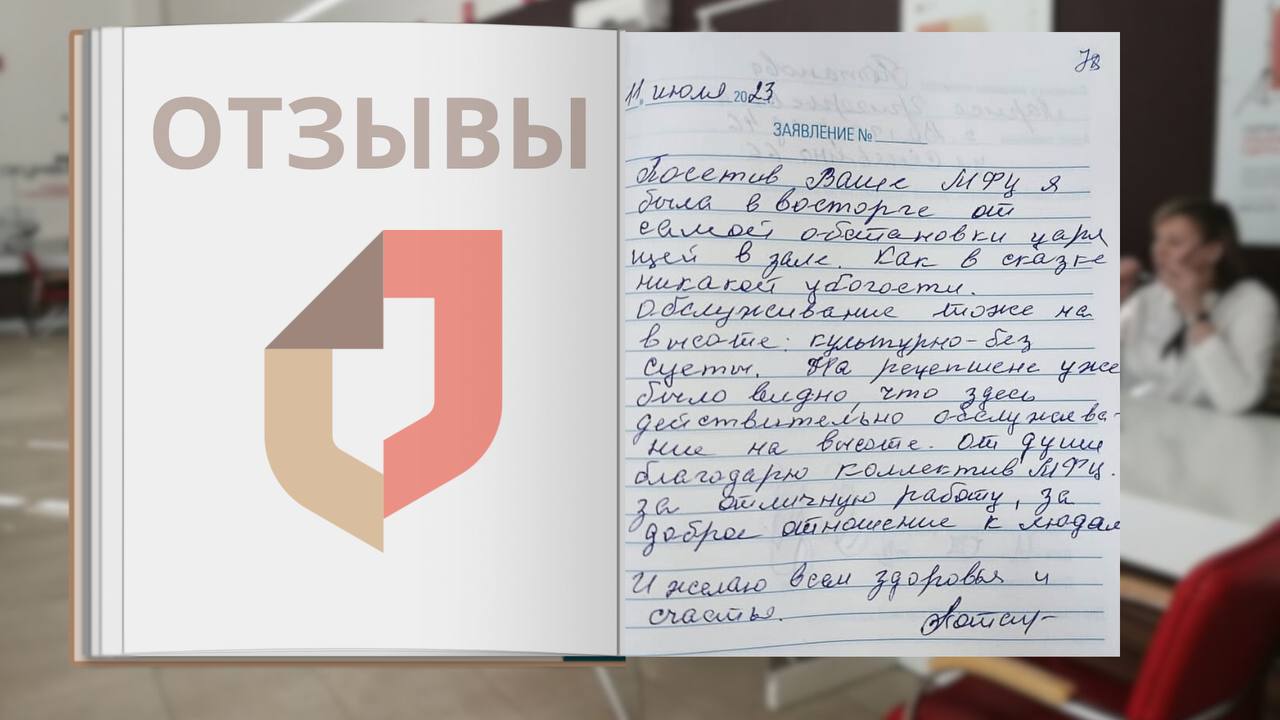 ОТЗЫВЫ
78
11 июля 2023
ЗАЯВЛЕНИЕ №
Посетив Ваше МФЦ я
была в восторге от
самой обстановки царя
щей в зале. Как в сказке
никакой убогости.
Обслуживание тоже на
высоте: культурно-без
суеты. На рецепшене уже
было видно, что здесь
действительно обслужива-
ние на высоте. От души
благодарю коллектив МФЦ.
за отличную работу, за
доброе отношение к людям
И желаю всем здоровья и
счастья.